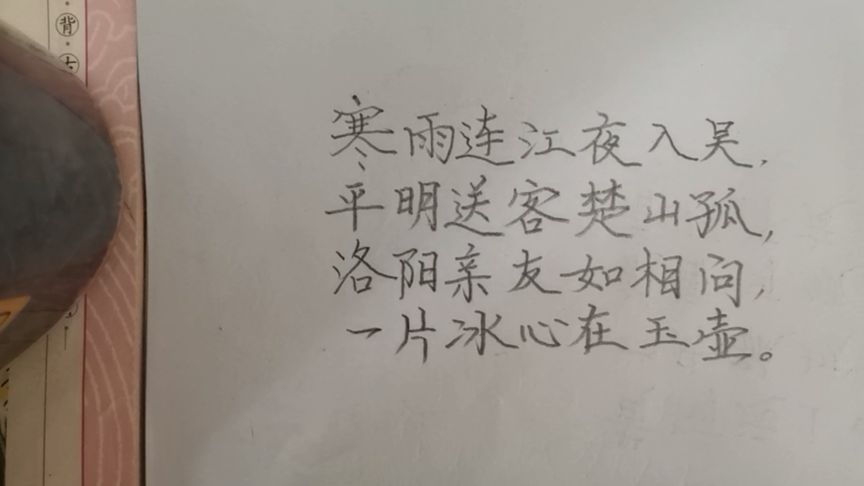 背
寒雨连江夜入吴,
平明送客楚山孤,
洛阳亲友如相问,
一片冰心在玉壶。